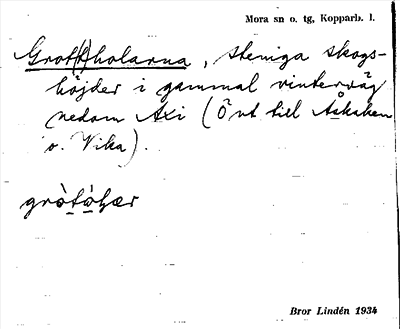 Mora sn o. tg, Kopparb. l.
Grot(t)holarna, steniga skogs-
höjder i gammal vinterväg
nedom Axi (Ö nt till Åskaken
o. Vika).
Bror Lindén 1934